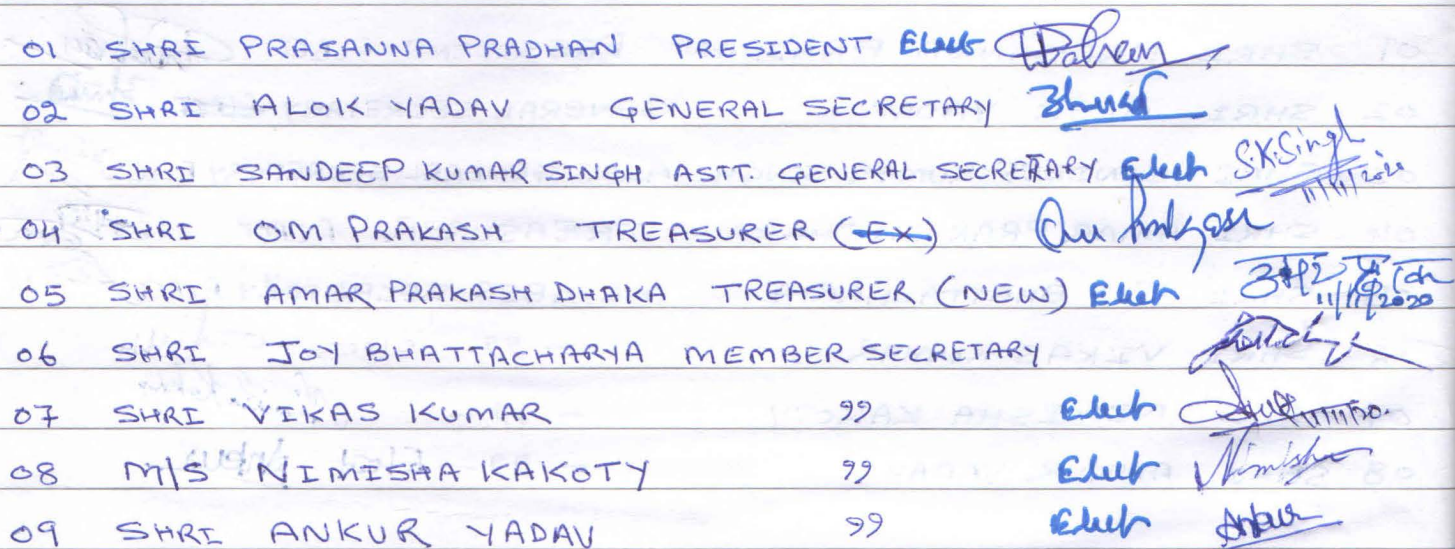 01 SHRI PRASANNA PRADHAN PRESIDENT Elect
02 SHRI ALOK YADAV GENERAL SECRETARY
03 SHRI SANDEEP KUMAR SINGH ASTT. GENERAL SECRETARY Elect S.K.Singh 11/11/2020
04 SHRI OM PRAKASH TREASURER (EX) Om Prakash
05 SHRI AMAR PRAKASH DHAKA TREASURER (NEW) Elect 11/11/2020
06 SHRI JOY BHATTACHARYA MEMBER SECRETARY
07 SHRI VIKAS KUMAR " Elect 11/11/20
08 M/S NIMISHA KAKOTY " Elect Nimisha
09 SHRI ANKUR YADAV " Elect Ankur